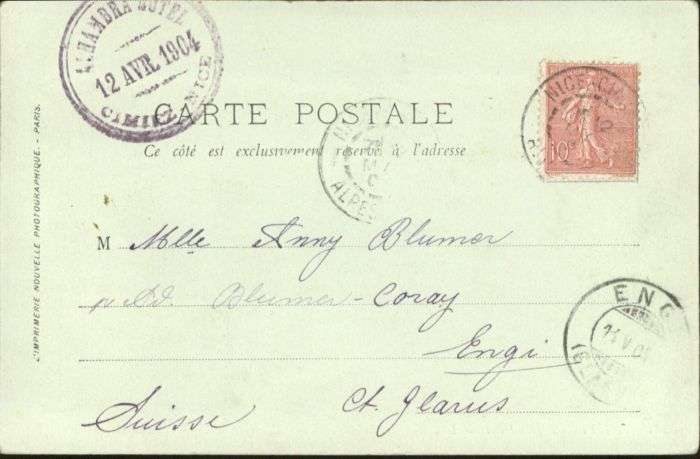 ALHAMBRA HOTEL
12 AVR. 1904
CIMIEZ NICE
CARTE POSTALE
Ce côté est exclusivement réservé à l'adresse
NICE
10c
ALPES
M Mlle Anny Blumer
Ad. Blumer-Coray
Engi
Suisse Ct. Glarus
ENG
L'IMPRIMERIE NOUVELLE PHOTOGRAPHIQUE. - PARIS.